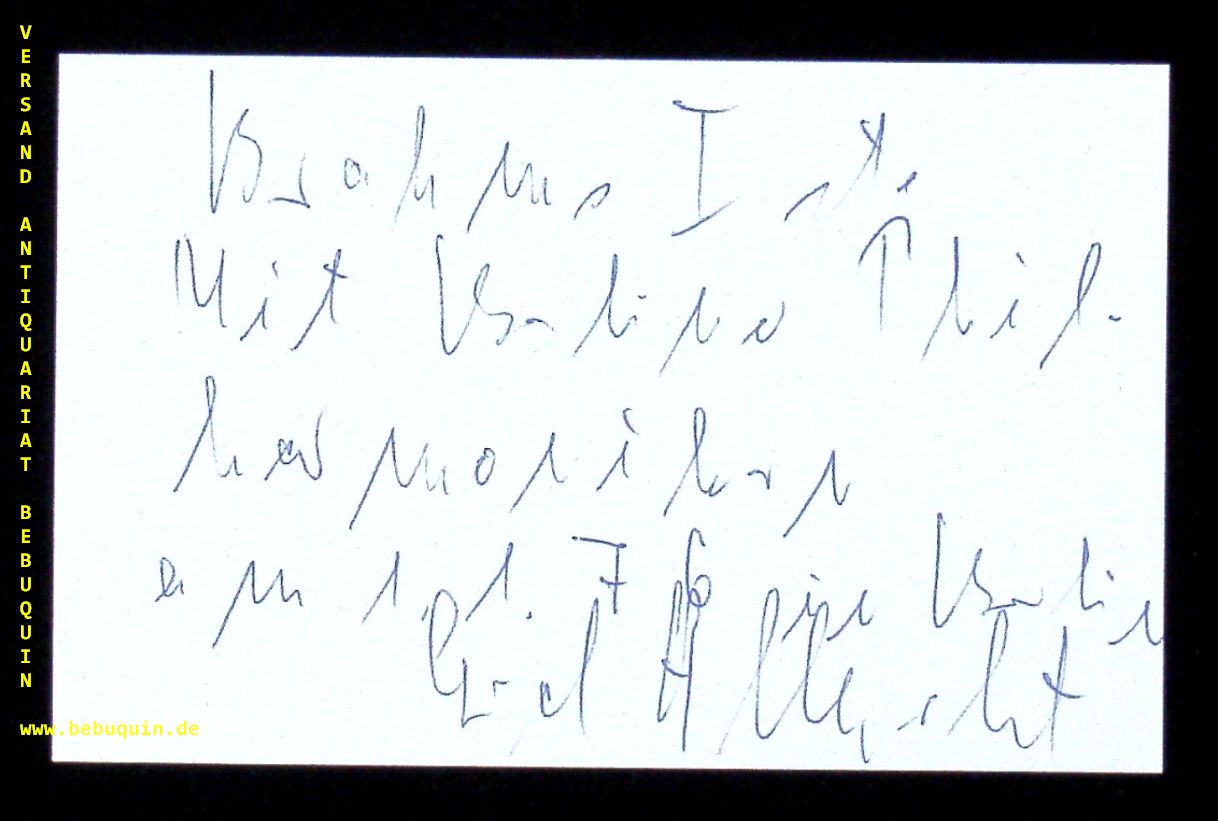 VERSAND ANTIQUARIAT BEBUQUIN
Brahms I ste
Mit Berliner Phil-
harmonikern
am 1.1. 76 in Berlin
Gerd Albrecht
www.bebuquin.de